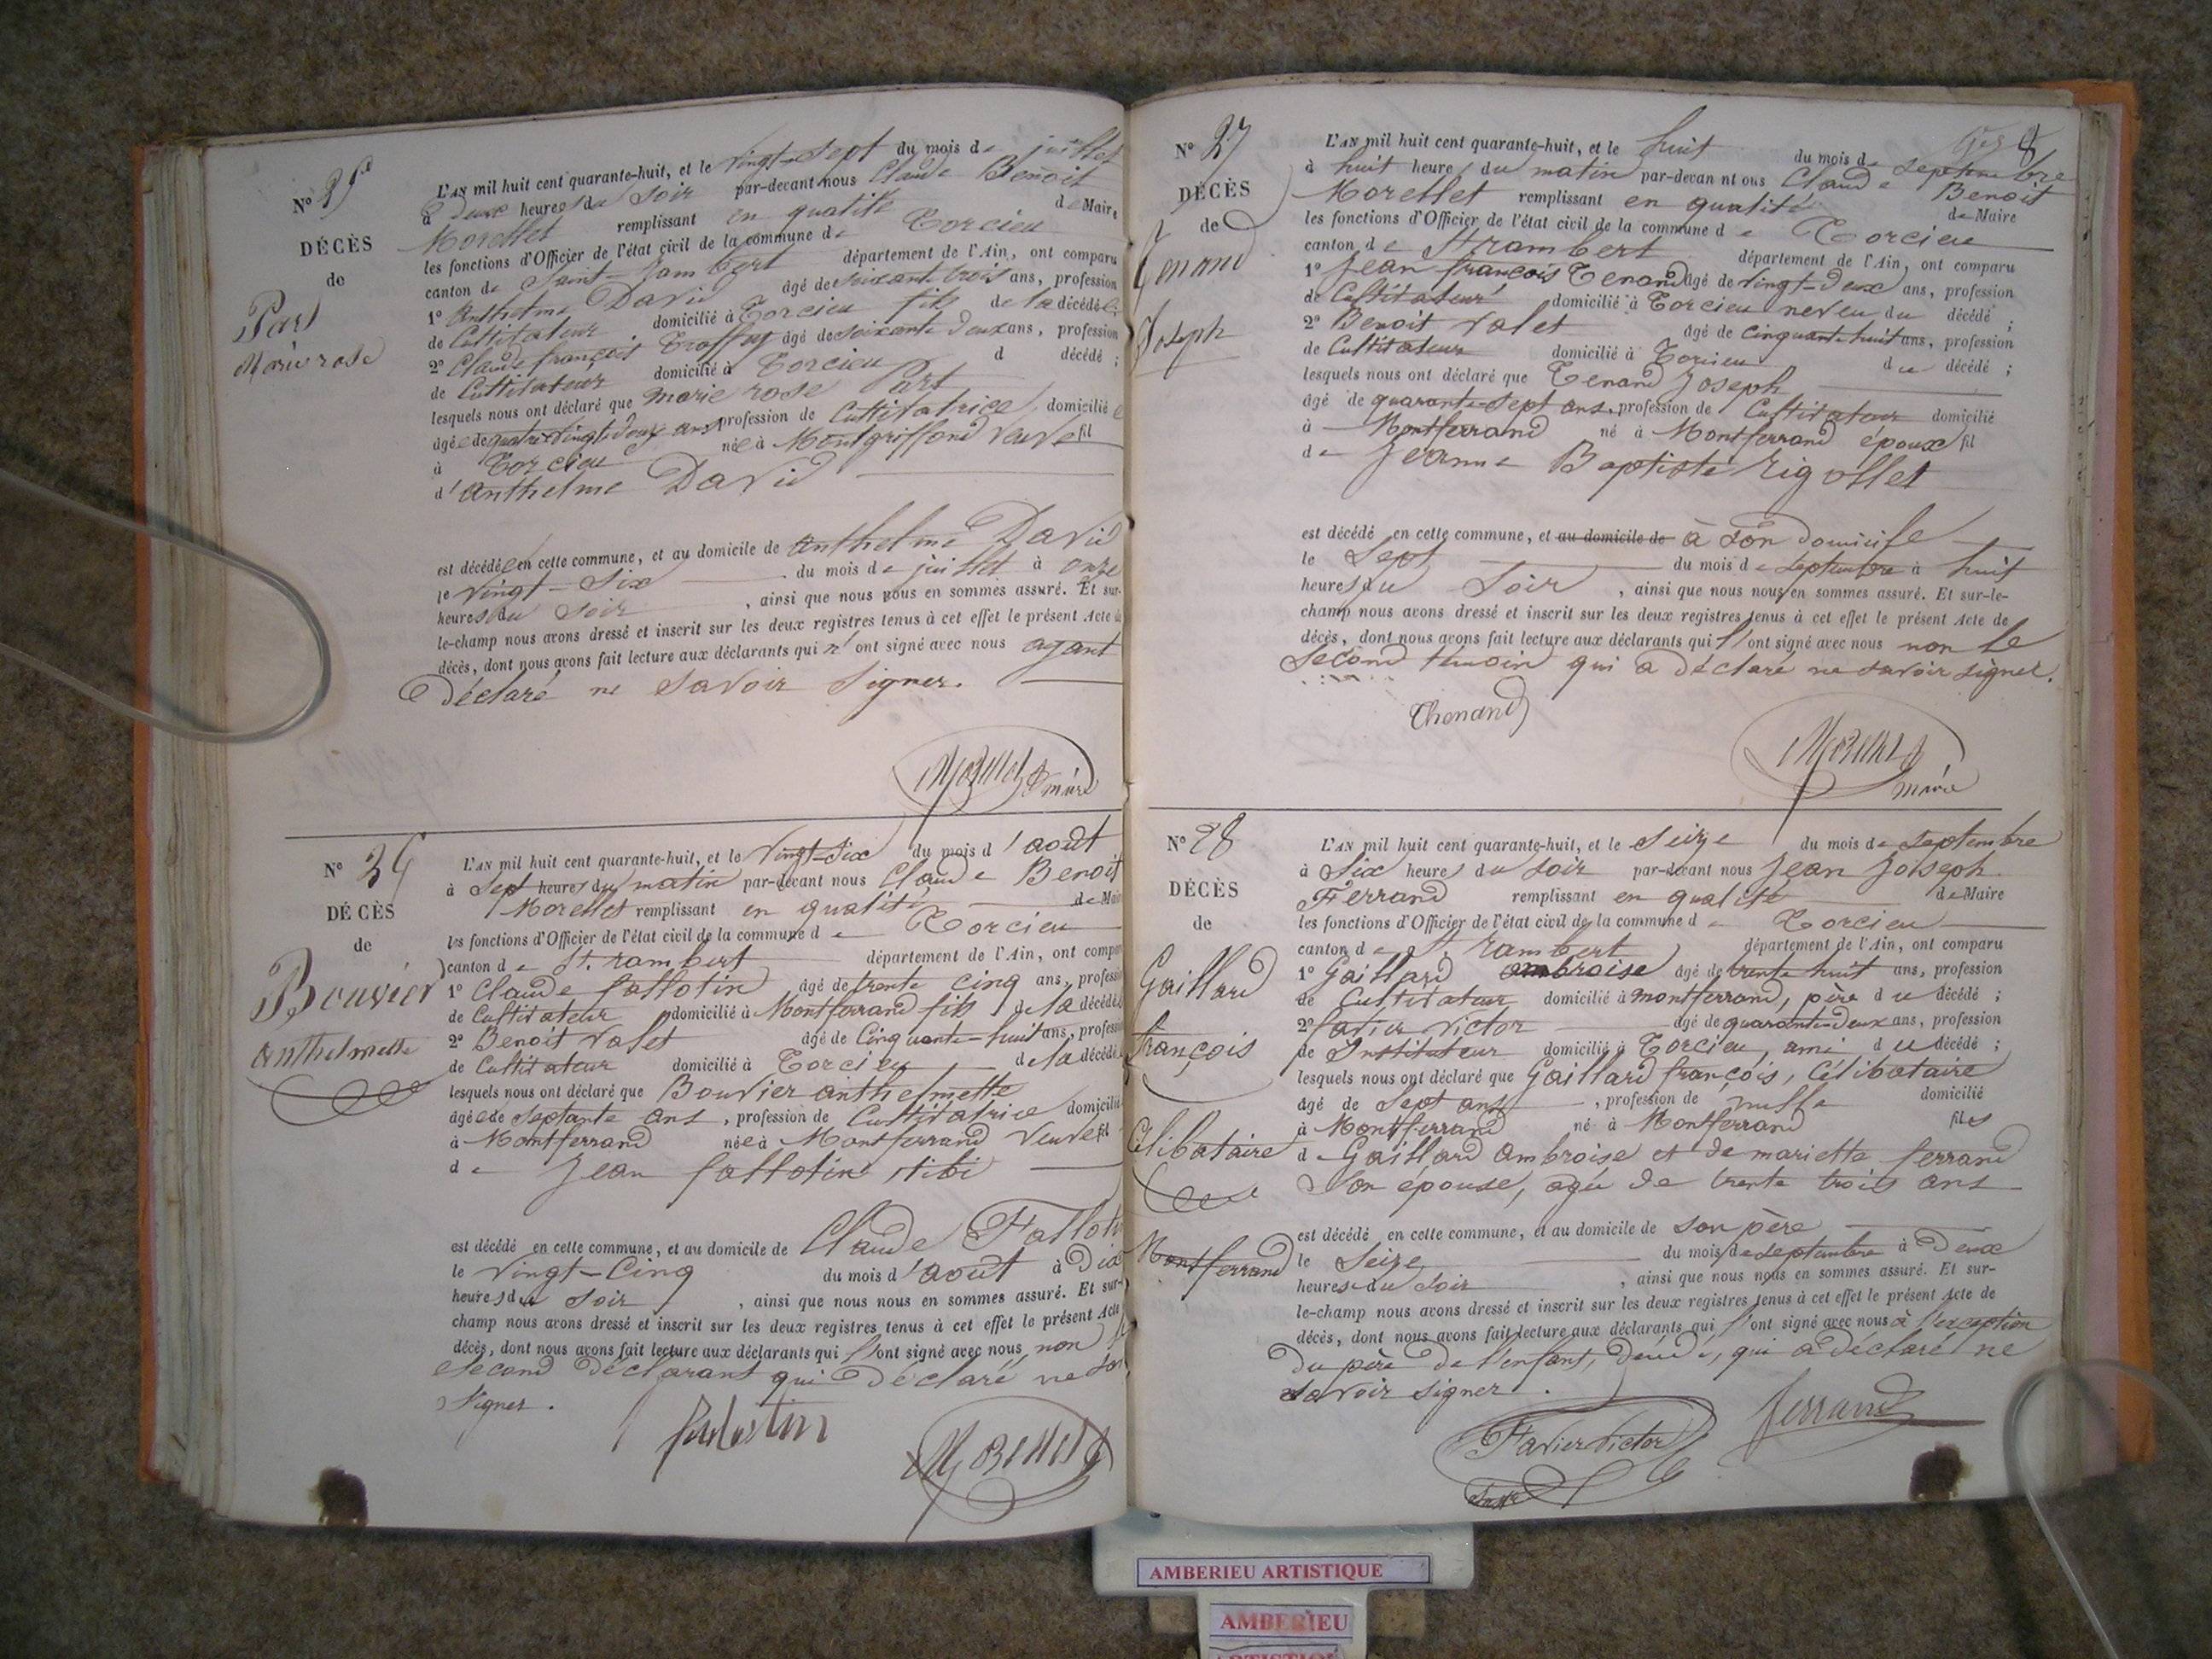 N° 25
DÉCÈS
de
Part
Marie rose
L'AN mil huit cent quarante-huit, et le vingt-sept du mois de juillet
à deux heures du soir par-devant nous Claude Benoit
Morellet remplissant en qualité de Maire
les fonctions d'Officier de l'état civil de la commune de Torcieu
canton de Saint-Rambert département de l'Ain, ont comparu
1° Anthelme David âgé de soixante trois ans, profession
de Cultivateur domicilié à Torcieu fils de la décédée;
2° Claude françois Troffy âgé de soixante deux ans, profession
de Cultivateur domicilié à Torcieu d décédé;
lesquels nous ont déclaré que marie rose Part
âgée de quatre-vingt-deux ans profession de Cultivatrice, domiciliée
à Torcieu née à Montgriffond veuve fil
d'Anthelme David
est décédée en cette commune, et au domicile de Anthelme David
le vingt-six du mois de juillet à onze
heures du soir, ainsi que nous nous en sommes assuré. Et sur-
le-champ nous avons dressé et inscrit sur les deux registres tenus à cet effet le présent Acte de
décès, dont nous avons fait lecture aux déclarants qui n'ont signé avec nous ayant
Déclaré ne savoir signer.
Morellet maire
N°
DÉCÈS
de
Bouvier
anthelmette
L'AN mil huit cent quarante-huit, et le vingt-six du mois d'août
à sept heures du matin par-devant nous Claude Benoit
Morellet remplissant en qualité de Maire
les fonctions d'Officier de l'état civil de la commune de Torcieu
canton de St. rambert département de l'Ain, ont comparu
1° Claude fallotin âgé de trente cinq ans, profession
de Cultivateur domicilié à Montferrand fils de la décédée
2° Benoit Valet âgé de Cinquante-huit ans, profession
de Cultivateur domicilié à Torcieu de la décédée
lesquels nous ont déclaré que Bouvier anthelmette
âgée de septante ans, profession de Cultivatrice domiciliée
à Montferrand née à Montferrand veuve fil
de Jean fallotin
est décédé en cette commune, et au domicile de Claude Fallotin
le vingt-Cinq du mois d'août à Dix
heures du soir, ainsi que nous nous en sommes assuré. Et sur-
champ nous avons dressé et inscrit sur les deux registres tenus à cet effet le présent Acte
décès, dont nous avons fait lecture aux déclarants qui l'ont signé avec nous non le
second déclarant qui a déclaré ne
signer.
Morellet
N° 27
DÉCÈS
de
Tenand
Joseph
8
L'AN mil huit cent quarante-huit, et le huit du mois de septembre
à huit heures du matin par-devant nous Claude Benoit
Morellet remplissant en qualité de Maire
les fonctions d'Officier de l'état civil de la commune de Torcieu
canton de St rambert département de l'Ain, ont comparu
1° Jean françois Tenand âgé de vingt-deux ans, profession
de Cultivateur domicilié à Torcieu neveu du décédé;
2° Benoit Valet âgé de cinquante huit ans, profession
de Cultivateur domicilié à Torcieu du décédé;
lesquels nous ont déclaré que Tenand Joseph
âgé de quarante-sept ans, profession de Cultivateur domicilié
à Montferrand né à Montferrand époux fil
de Jeanne Baptiste Rigollet
est décédé en cette commune, et au domicile de à son domicile
le sept du mois de septembre à huit
heures du soir, ainsi que nous nous en sommes assuré. Et sur-le-
champ nous avons dressé et inscrit sur les deux registres tenus à cet effet le présent Acte de
décès, dont nous avons fait lecture aux déclarants qui l'ont signé avec nous non le
second témoin qui a déclaré ne savoir signer.
Thenand
Morellet
maire
N° 28
DÉCÈS
de
Gaillard
françois
Célibataire
Montferrand
L'AN mil huit cent quarante-huit, et le seize du mois de septembre
à six heures du soir par-devant nous Jean Joseph
Ferrand remplissant en qualité de Maire
les fonctions d'Officier de l'état civil de la commune de Torcieu
canton de St. rambert département de l'Ain, ont comparu
1° Gaillard ambroise âgé de trente huit ans, profession
de Cultivateur domicilié à montferrand, père du décédé;
2° favier victor âgé de quarante-deux ans, profession
de Instituteur domicilié à Torcieu, ami du décédé;
lesquels nous ont déclaré que Gaillard françois, Célibataire
âgé de sept ans, profession de nulle domicilié
à Montferrand né à Montferrand fils
de Gaillard ambroise et de mariette ferrand
son épouse, agée de trente trois ans
est décédé en cette commune, et au domicile de son père
le seize du mois de septembre à Deux
heures du soir, ainsi que nous nous en sommes assuré. Et sur-
le-champ nous avons dressé et inscrit sur les deux registres tenus à cet effet le présent Acte de
décès, dont nous avons fait lecture aux déclarants qui l'ont signé avec nous à l'exception
du père de l'enfant, décédé, qui a déclaré ne
savoir signer.
Favier victor
ferrand
AMBERIEU ARTISTIQUE
AMBERIEU
ARTISTIQUE